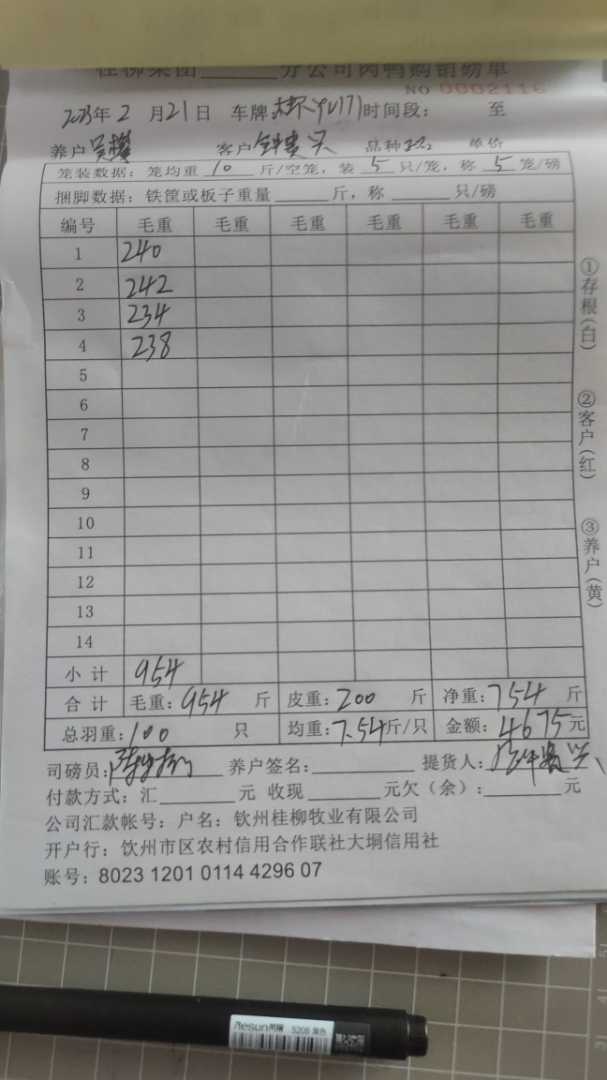 桂柳集团______分公司肉鸭购销磅单
NO 0002116
2023年2月21日 车牌 时间段: 至
养户 客户 品种 单价
笼装数据:笼均重 10 斤/空笼,装 5 只/笼,称 5 笼/磅
捆脚数据:铁筐或板子重量______斤,称______只/磅
编号 毛重 毛重 毛重 毛重 毛重 毛重
1 240
2 242
3 234
4 238
5
6
7
8
9
10
11
12
13
14
小计 954
合计 毛重:954 斤 皮重:200 斤 净重:754 斤
总羽重:100 只 均重:7.54斤/只 金额:4675元
司磅员: 养户签名: 提货人:
付款方式:汇______元 收现______元欠(余):______元
公司汇款帐号:户名:钦州桂柳牧业有限公司
开户行:钦州市区农村信用合作联社大垌信用社
账号:8023 1201 0114 4296 07
①存根(白)
②客户(红)
③养户(黄)
5208 黑色